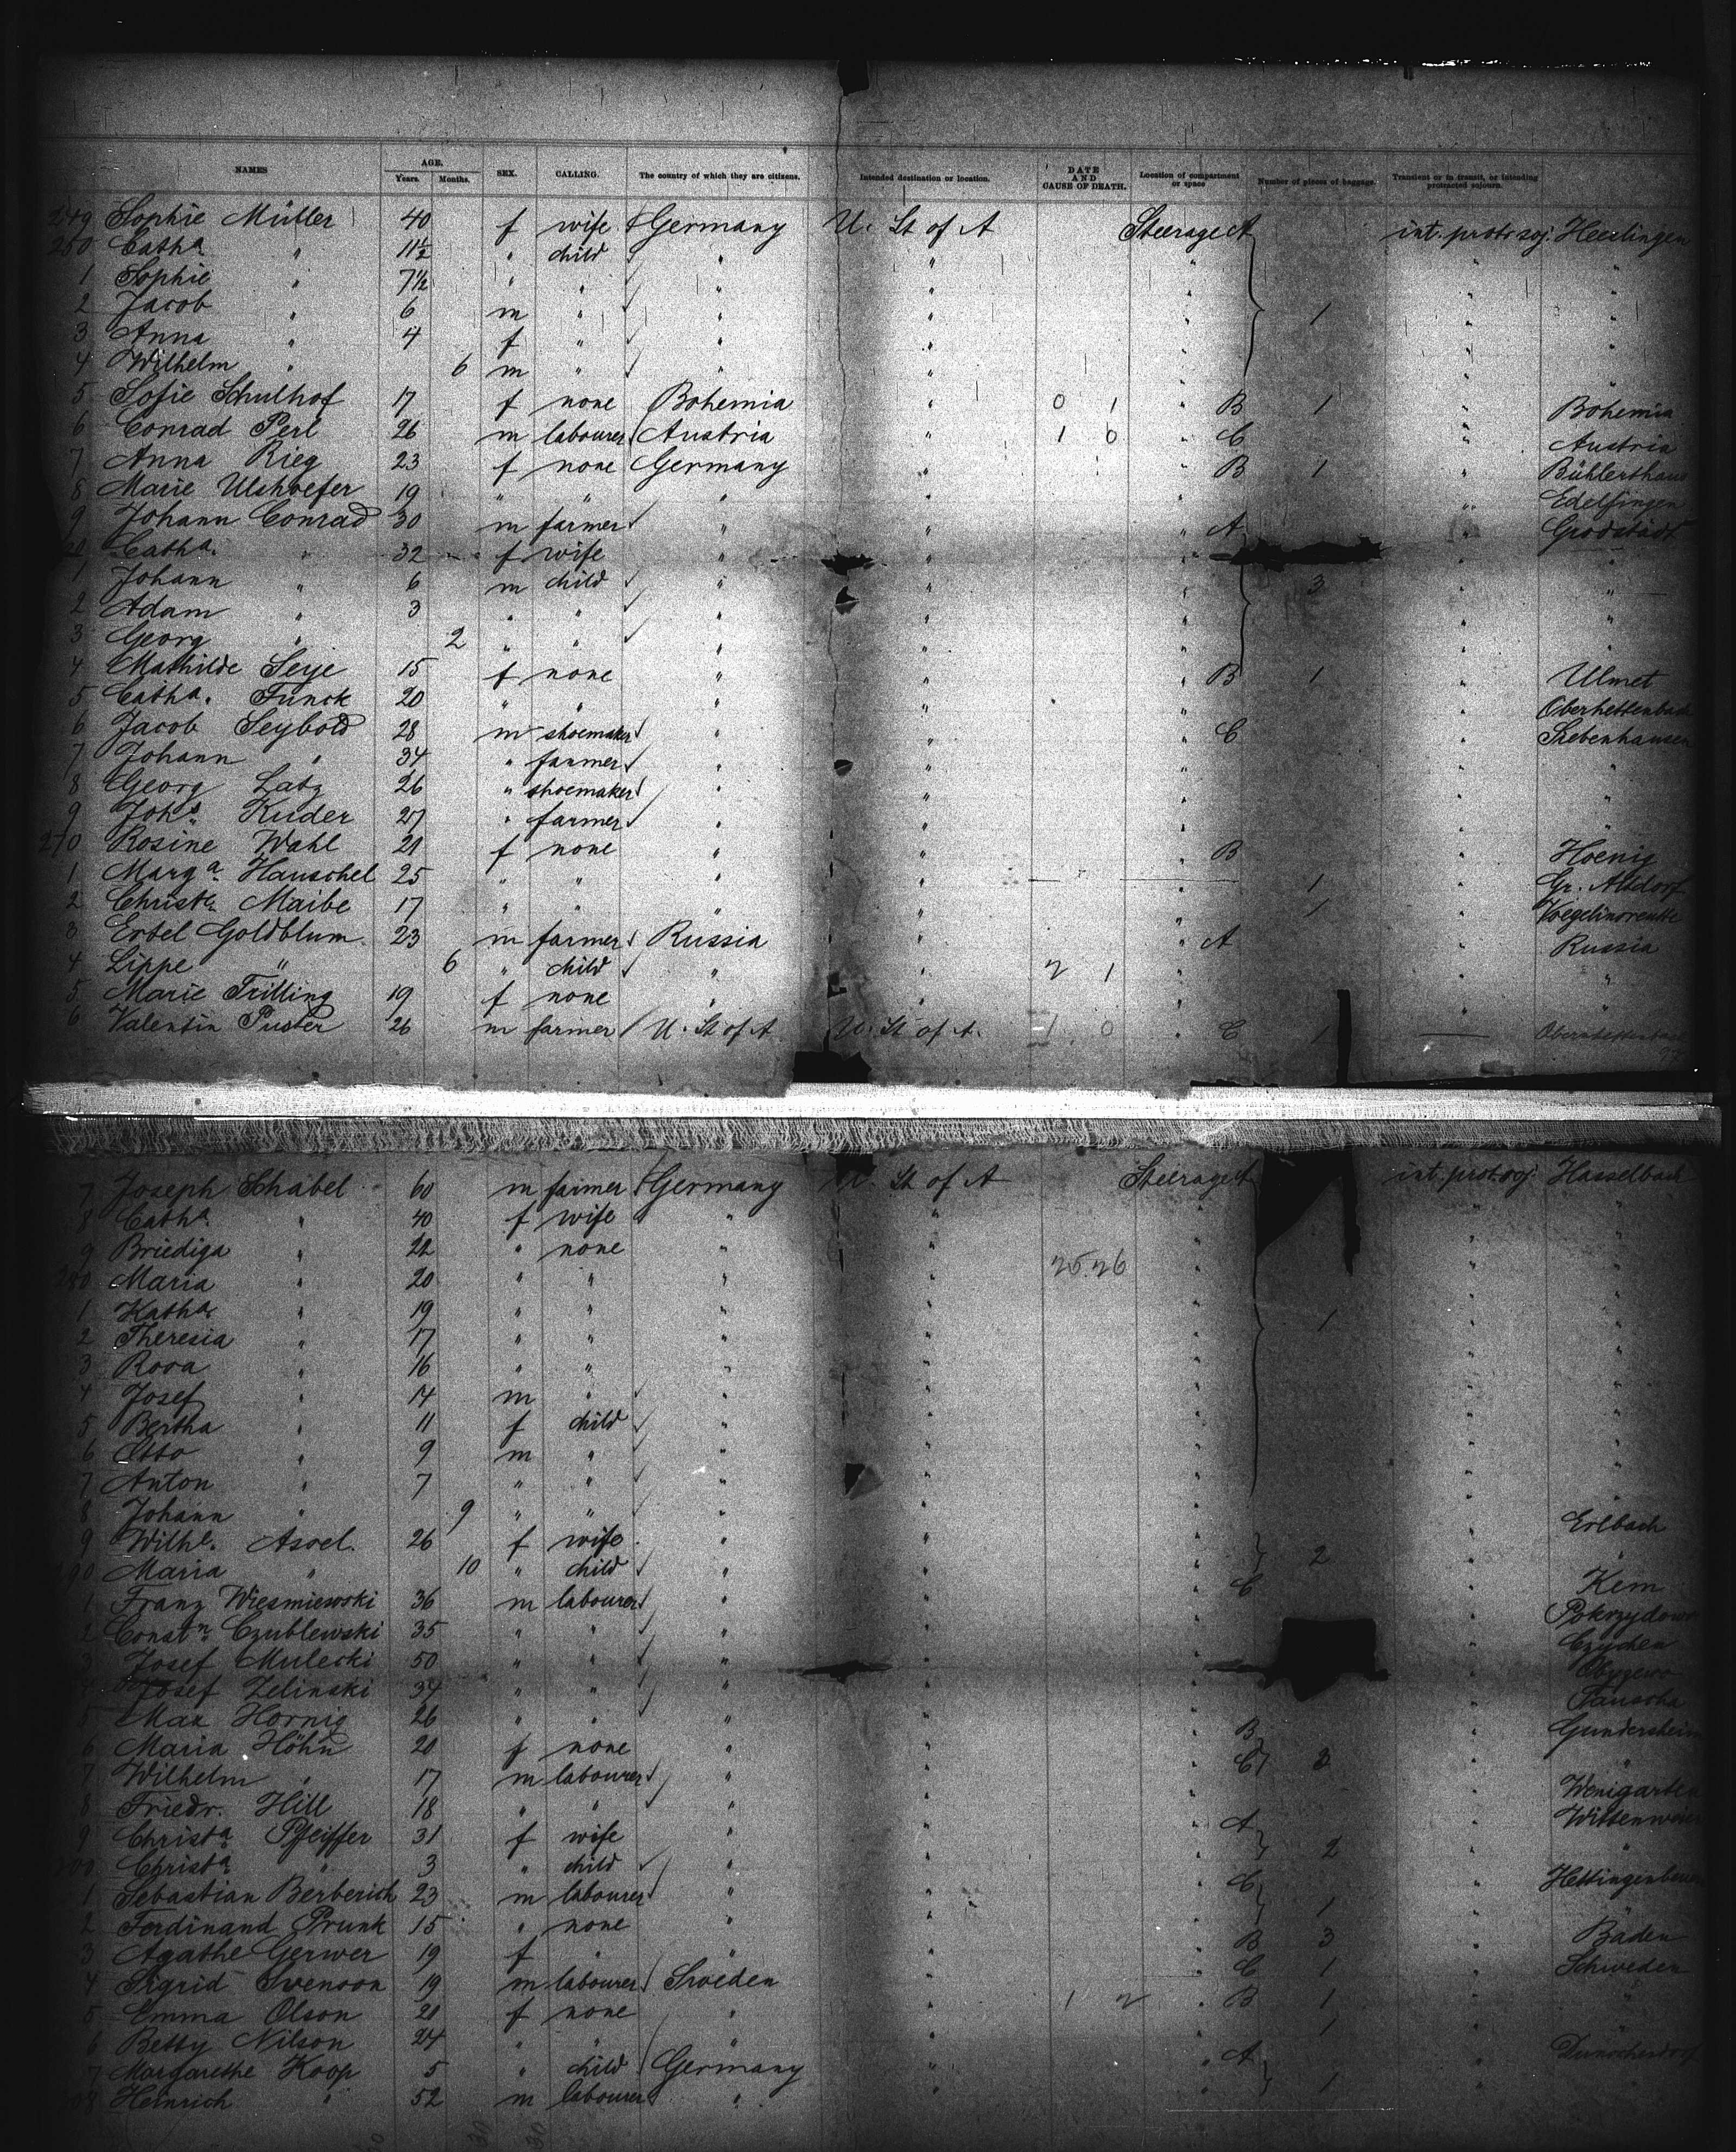 NAMES AGE. Years. Months. SEX. CALLING. The country of which they are citizens. Intended destination or location. DATE AND CAUSE OF DEATH. Location of compartment or space Number of pieces of baggage. Transient or in transit, or intending protracted sojourn.
249 Sophie Müller 40 f wife Germany U. St of A Steerage A int. protr. soj.
250 Catha. " 11½ " child " " " " "
1 Sophie " 7½ " " " " " " "
2 Jacob " 6 m " " " " 1 " "
3 Anna " 4 f " " " " " "
4 Wilhelm " 6 m " " " " " "
5 Sofie Schulhof 17 f none Bohemia " 0 1 " B 1 " Bohemia
6 Conrad Perl 26 m labourer Austria " 1 0 " C " Austria
7 Anna Rieg 23 f none Germany " " B 1 "
8 Marie Ulshoefer 19 " " " " " " Edelfingen
9 Johann Conrad 30 m farmer " " " A "
60 Catha. " 32 f wife " " " " "
1 Johann " 6 m child " " " 3 " "
2 Adam " 3 " " " " " " "
3 Georg " 2 " " " " " " "
4 Mathilde Seye 15 f none " " " B 1 " Ulmet
5 Catha. Funck 20 " " " " " "
6 Jacob Seybold 28 m shoemaker " " " C "
7 Johann " 34 " farmer " " " " "
8 Georg Latz 26 " shoemaker " " " " "
9 Johs. Kuder 27 " farmer " " " " "
270 Rosine Wahl 21 f none " " " B " Hoenig
1 Marga. Hauschel 25 " " " " " 1 " Gr. Altdorf
2 Christe. Maibe 17 " " " " " 1 "
3 Ertel Goldblum 23 m farmer Russia " " A " Russia
4 Lippe " 6 " child " " 2 1 " " "
5 Marie Trilling 19 f none " " " " "
6 Valentin Puster 26 m farmer U. St of A U. St of A. 1 0 C 1
7 Joseph Schabel 60 m farmer Germany U. St of A Steerage A int. prot. soj. Hasselbach
8 Catha. " 40 f wife " " " " "
9 Briediga " 22 " none " " " " "
280 Maria " 20 " " " " 25.26 " " "
1 Katha. " 19 " " " " " " "
2 Theresia " 17 " " " " " 1 " "
3 Rosa " 16 " " " " " " "
4 Josef " 14 m " " " " " "
5 Bertha " 11 f child " " " " "
6 Otto " 9 m " " " " " "
7 Anton " 7 " " " " " " "
8 Johann " 9 " " " " " " "
9 Wilhe. Assel. 26 f wife " " " 2 " Erlbach
290 Maria " 10 " child " " " " "
1 Franz Wiesmiewski 36 m labourer " " " C " Kem
2 Constn. Czublewski 35 " " " " " "
3 Josef Mulecki 50 " " " " " " Czychen
4 Josef Zelinski 34 " " " " " "
5 Max Hornig 26 " " " " " " Taucha
6 Maria Höhn 20 f none " " " B " Gundersheim
7 Wilhelm " 17 m labourer " " " C 3 " "
8 Friedr. Hill 18 " " " " " "
9 Christa. Pfeiffer 31 f wife " " " A 2 "
300 Christa. " 3 " child " " " " "
1 Sebastian Berberich 23 m labourer " " " C 1 "
2 Ferdinand Prunk 15 " none " " " "
3 Agathe Gerwer 19 f " " " " B 3 " Baden
4 Sigrid Svenson 19 m labourer Sweden " " C 1 " Schweden
5 Emma Olson 20 f none " " 1 2 " B 1 " "
6 Betty Nilson 24 " " " " " 1 " "
7 Margarethe Koop 5 " child Germany " " A "
308 Heinrich " 52 m labourer " " " 1 " "